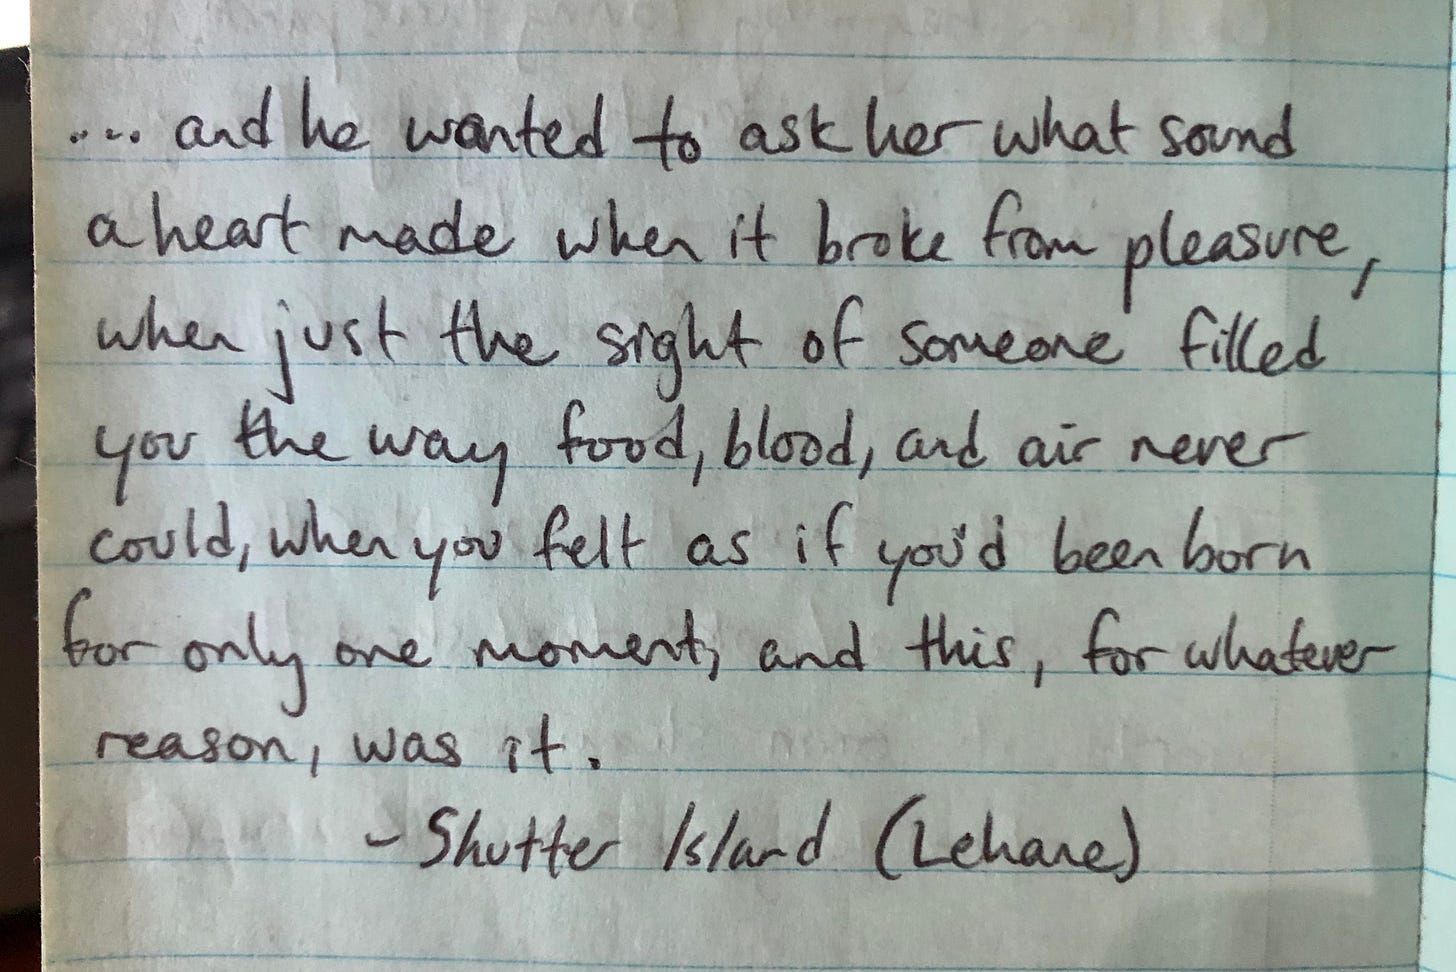 .... and he wanted to ask her what sound
a heart made when it broke from pleasure,
when just the sight of someone filled
you the way food, blood, and air never
could, when you felt as if you'd been born
for only one moment, and this, for whatever
reason, was it.
- Shutter Island (Lehane)